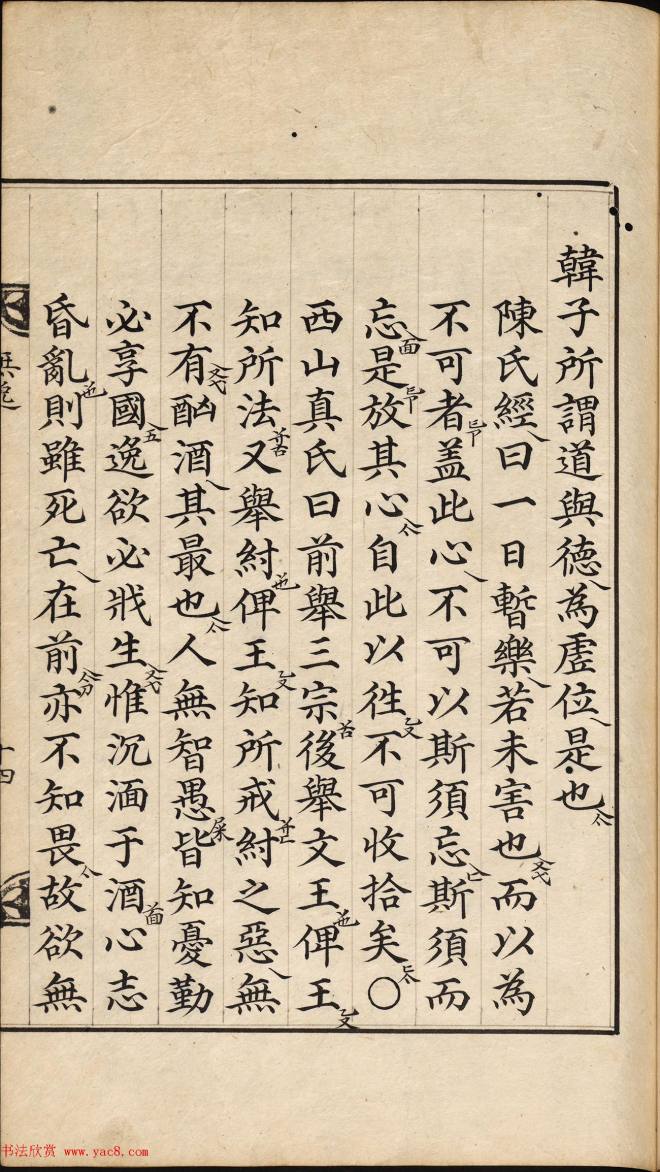 韓子所謂道與德為虛位是也
陳氏經曰一日暫樂若未害也而以為
不可者盖此心不可以斯須忘斯須而
忘是放其心自此以徃不可收拾矣○
西山真氏曰前舉三宗後舉文王俾王
知所法又舉紂俾王知所戒紂之惡無
不有酗酒其最也人無智愚皆知憂勤
必享國逸欲必戕生惟沉湎于酒心志
昏亂則雖死亡在前亦不知畏故欲無
無逸
十四
书法欣赏 www.yac8.com